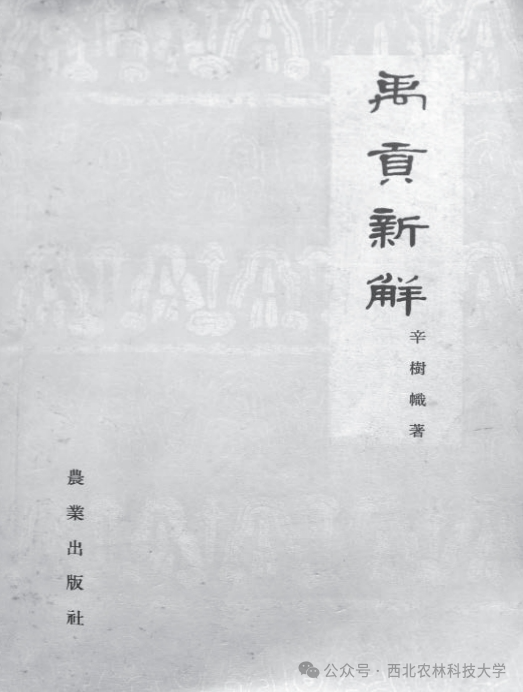 禹貢新解
辛樹幟著
農業出版社
公众号·西北农林科技大学